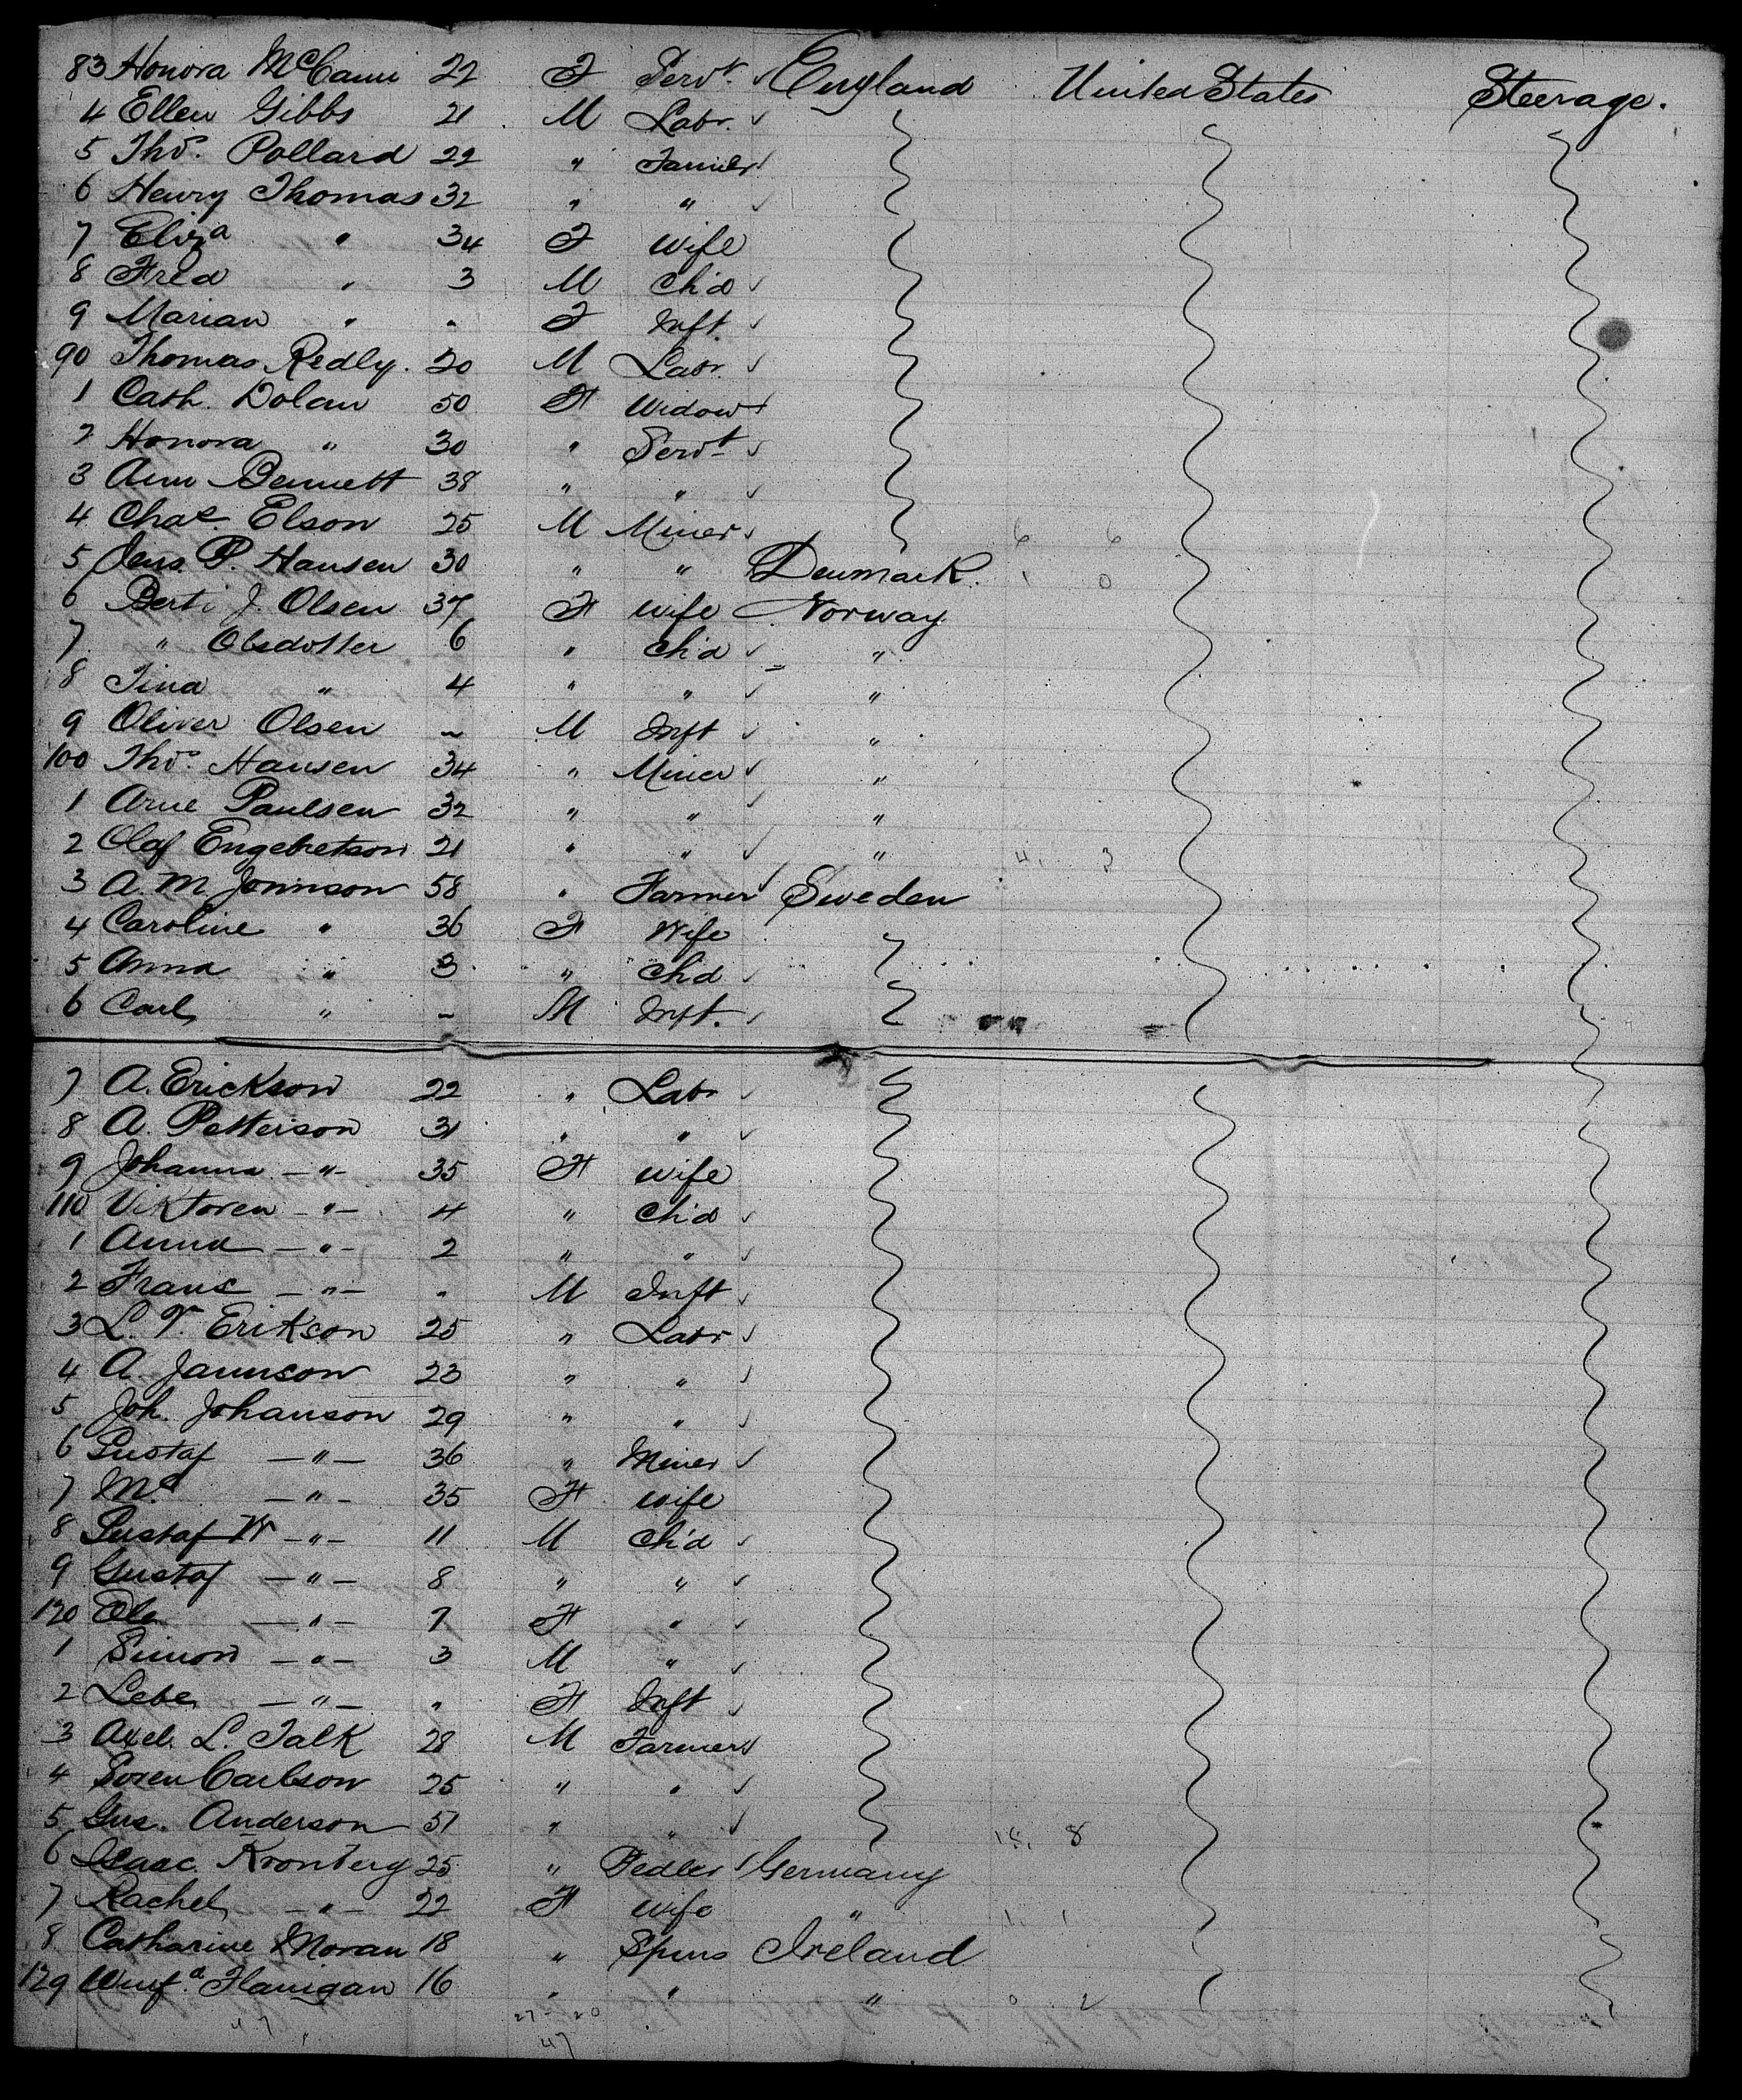 83 Honora McCann 22 F Servt. England United States Steerage.
4 Ellen Gibbs 21 M Labr.
5 Thos. Pollard 22 " Farmer
6 Henry Thomas 32 " "
7 Eliza " 34 F Wife
8 Fred " 3 M Ch'd
9 Marian " " F Inft.
90 Thomas Redly. 20 M Labr.
1 Cath. Dolan 50 F Widow
2 Honora " 30 " Servt
3 Ann Bennett 38 " "
4 Chas. Elson 25 M Miner 6 6
5 Jens. P. Hansen 30 " " Denmark. 1 0
6 Berti J. Olsen 37 F Wife Norway
7 " Olsdotter 6 " Ch'd "
8 Tina " 4 " " "
9 Oliver Olsen ~ M Inft "
100 Thos. Hansen 34 " Miner "
1 Arne Paulsen 32 " " "
2 Olaf Engebretson 21 " " " 4 3
3 A. M Jonnson 58 " Farmer Sweden
4 Caroline " 36 F Wife
5 Anna " 3 " Ch'd
6 Carl " ~ M Inft.
7 A. Erickson 22 " Labr
8 A. Petterson 31 " "
9 Johanna — " — 35 F Wife
110 Viktoren — " — 4 " Ch'd
1 Anna — " — 2 " "
2 Frans — " — " M Inft
3 L. V. Erikson 25 " Labr
4 A. Jannson 23 " "
5 Joh. Johanson 29 " "
6 Gustaf — " — 36 " Miner
7 Ms — " — 35 F Wife
8 Gustaf W — " — 11 M Ch'd
9 Gustaf — " — 8 " "
120 Ola — " — 7 F "
1 Simon — " — 3 M "
2 Lebe — " — " F Inft
3 Axel. L. Falk 28 M Farmer
4 Soren Carlson 25 " "
5 Gus. Anderson 51 " " 15 8
6 Isaac Kronberg 25 " Pedler Germany
7 Rachel — " — 22 F Wife " 1 1
8 Catharine Moran 18 " Spins Ireland
129 Winfd. Flanigan 16 " " " 0 2
27 - 20
47